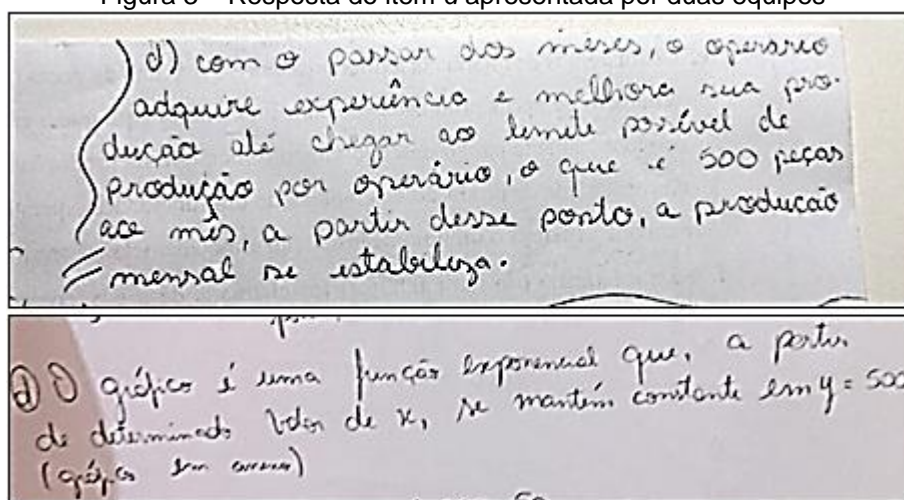 d) com o passar dos meses, o operário
adquire experiência e melhora sua pro-
dução até chegar ao limite possível de
produção por operário, o que é 500 peças
ace mês, a partir desse ponto, a produção
mensal se estabiliza.
d) O gráfico é uma função exponencial que, a partir
de determinado valor de x, se mantém constante em y = 500
(gráfico em